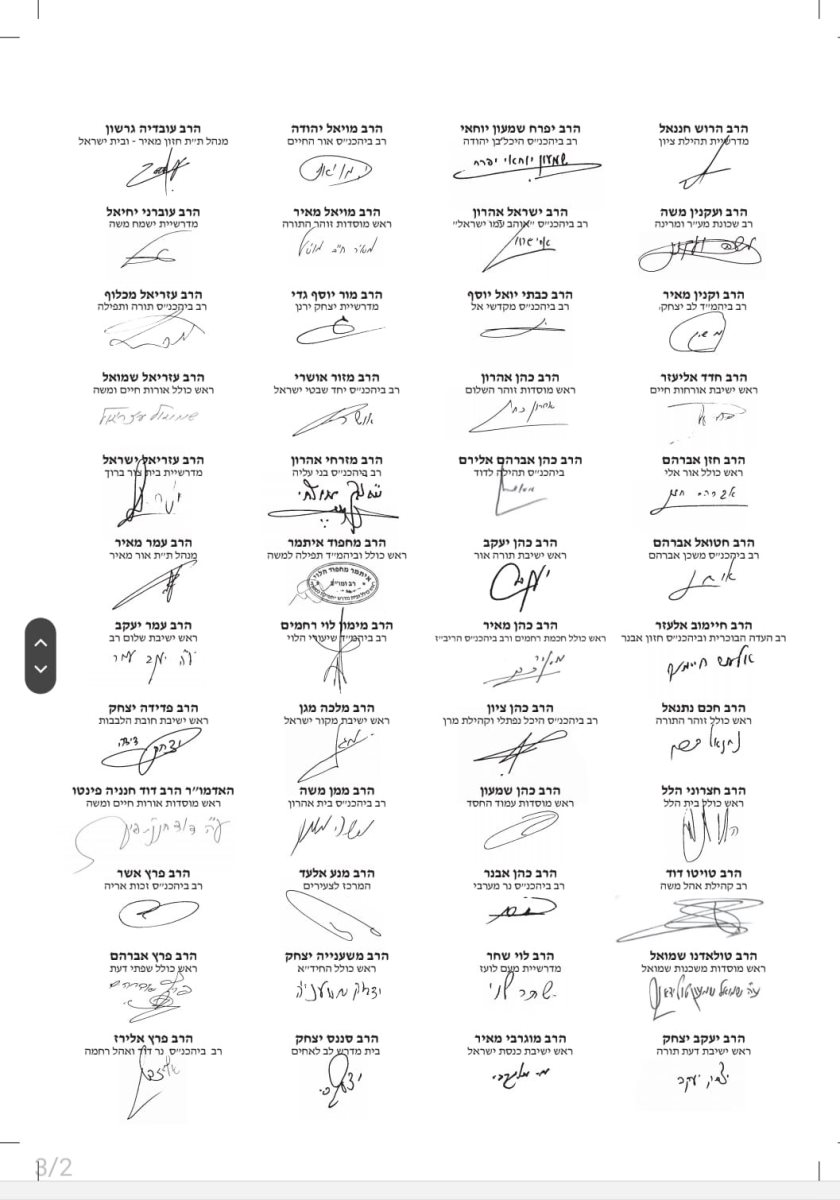 הרב הרוש חננאל
מדרשיית תהילת ציון
הרב ועקנין משה
רב שכונת מע״ר ומרינה
הרב וקנין מאיר
רב ביהמ״ד לב יצחק,
הרב חדד אליעזר
ראש ישיבת אורחות חיים
הרב חזן אברהם
ראש כולל אור אלי
אברהם חזן
הרב חטואל אברהם
רב ביהכנ״ס משכן אברהם
הרב חיימוב אלעזר
רב העדה הבוכרית וביהכנ״ס חזון אבנר
הרב חכם נתנאל
ראש כולל זוהר התורה
הרב חצרוני הלל
ראש כולל בית הלל
הרב טויטו דוד
רב קהילת אהל משה
הרב טולאדנו שמואל
ראש מוסדות משכנות שמואל
הרב יעקב יצחק
ראש ישיבת דעת תורה
הרב יפרח שמעון יוחאי
רב ביהכנ״ס היכל בן יהודה
שמעון יוחאי יפרח
הרב ישראל אהרון
רב ביהכנ״ס ״אוהב עמו ישראל״
הרב כבתי יואל יוסף
רב ביהכנ״ס מקדשי אל
הרב כהן אהרון
ראש מוסדות זוהר השלום
אהרון כהן
הרב כהן אברהם אלירם
ביהכנ״ס תהילה לדוד
הרב כהן יעקב
ראש ישיבת תורה אור
הרב כהן מאיר
ראש כולל חכמת רחמים ורב ביהכנ״ס הריב״ז
הרב כהן ציון
רב ביהכנ״ס היכל נפתלי וקהילת מרן
הרב כהן שמעון
ראש מוסדות עמוד החסד
הרב כהן אבנר
רב ביהכנ״ס נר מערבי
הרב לוי שחר
מדרשיית מעם לועז
שחר לוי
הרב מוגרבי מאיר
ראש ישיבת כנסת ישראל
הרב מויאל יהודה
רב ביהכנ״ס אור החיים
הרב מויאל מאיר
ראש מוסדות זוהר התורה
הרב מור יוסף גדי
מדרשיית יצחק ירנן
הרב מזור אושרי
רב ביהכנ״ס יחד שבטי ישראל
הרב מזרחי אהרון
רב ביהכנ״ס בני עליה
הרב מחפוד איתמר
ראש כולל וביהמ״ד תפילה למשה
איתמר מחפוד הלוי
הרב מימון לוי רחמים
רב ביהמ״ד שיעורי הלוי
הרב מלכה מגן
ראש ישיבת מקור ישראל
הרב ממן משה
רב ביהכנ״ס בית אהרון
משה ממן
הרב מנע אלעד
המרכז לצעירים
הרב משענייה יצחק
ראש כולל החיד״א
יצחק משעניה
הרב סננס יצחק
בית מדרש לב לאחים
הרב עובדיה גרשון
מנהל ת״ת חזון מאיר - ובית ישראל
הרב עוברני יחיאל
מדרשיית ישמח משה
הרב עזריאל מכלוף
רב ביהכנ״ס תורה ותפילה
הרב עזריאל שמואל
ראש כולל אורות חיים ומשה
שמואל עזריאל
הרב עזריאל ישראל
מדרשיית בית צור ברוך
הרב עמר מאיר
מנהל ת״ת אור מאיר
הרב עמר יעקב
ראש ישיבת שלום רב
ע״ה יעקב עמר
הרב פדידה יצחק
ראש ישיבת חובת הלבבות
האדמו״ר הרב דוד חנניה פינטו
ראש מוסדות אורות חיים ומשה
הרב פרץ אשר
רב ביהכנ״ס זכות אריה
הרב פרץ אברהם
ראש כולל שפתי דעת
הרב פרץ אלירז
רב ביהכנ״ס נר דוד ואהל רחמה
3/2